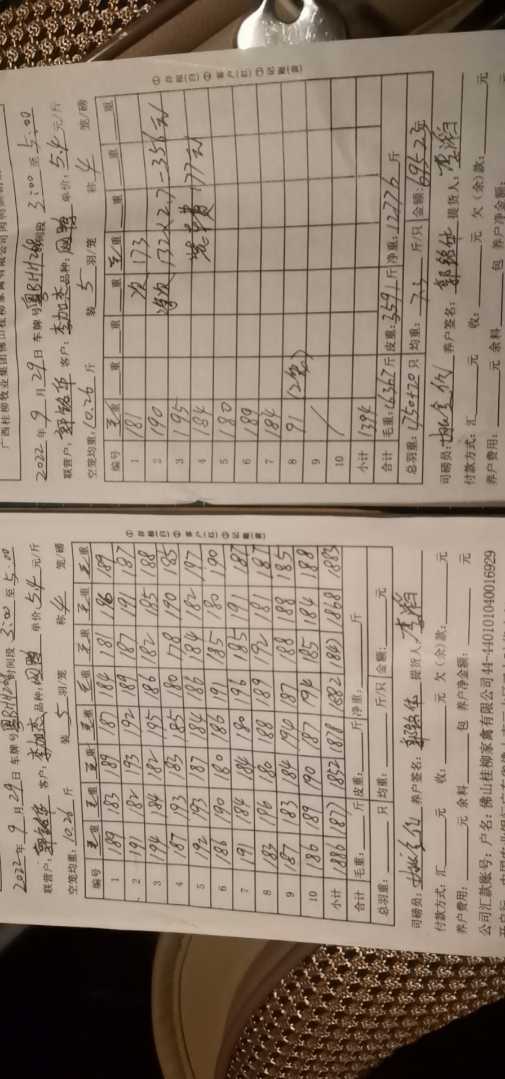 2022年9月29日 车牌号粤BHH268时间段 3:00 至 5:00
联营户: 郭铭华 客户: 李加杰 品种: 单价: 5.4 元/斤
空笼均重: 10.26 斤 装 5 羽/笼 称 4 笼/磅
编号 毛重 毛重 毛重 毛重 毛重 毛重 毛重 毛重
1 189 183 189 187 184 181 196 189
2 191 182 193 192 189 187 191 187
3 194 184 182 195 186 182 185 188
4 187 193 183 185 180 178 190 185
5 192 193 187 184 186 184 182 197
6 186 190 180 186 191 185 180 190
7 191 184 184 180 196 185 191 187
8 183 196 180 188 189 192 181 187
9 187 183 184 194 187 188 188 185
10 186 189 190 187 194 185 184 188
小计 1886 1877 1852 1878 1882 1847 1868 1883
合计 毛重: 斤 皮重: 斤 净重: 斤
总羽重: 只 均重: 斤/只 金额: 元
司磅员: 养户签名: 郭铭华 提货人:
付款方式: 汇 元 收: 元 欠(余)款: 元
养户费用: 元 余料 包 养户净金额: 元
公司汇款账号: 户名: 佛山桂柳家禽有限公司44-440101040016929
①存根(白)②客户(红)③记账(黄)
广西桂柳牧业集团佛山桂柳家禽有限公司
2022年9月29日 车牌号粤BHH268时间段 3:00 至 5:00
联营户: 郭铭华 客户: 李加杰 品种: 单价: 5.4 元/斤
空笼均重: 10.26 斤 装 5 羽/笼 称 4 笼/磅
编号 毛重 重 重 重 毛重 重 重 重
1 181 次 173
2 190 净次 132×2.7=356元
3 195
4 184 装车费 177元
5 180
6 189
7 184
8 91 (2笼)
9 /
10 /
小计 1394
合计 毛重: 16367 斤 皮重: 3591 斤 净重: 12776 斤
总羽重: 1750+20 只 均重: 7.3 斤/只 金额: 69522元
司磅员: 养户签名: 郭铭华 提货人:
付款方式: 汇 元 收: 元 欠(余)款: 元
养户费用: 元 余料 包 养户净金额: 元
①存根(白)②客户(红)③记账(黄)